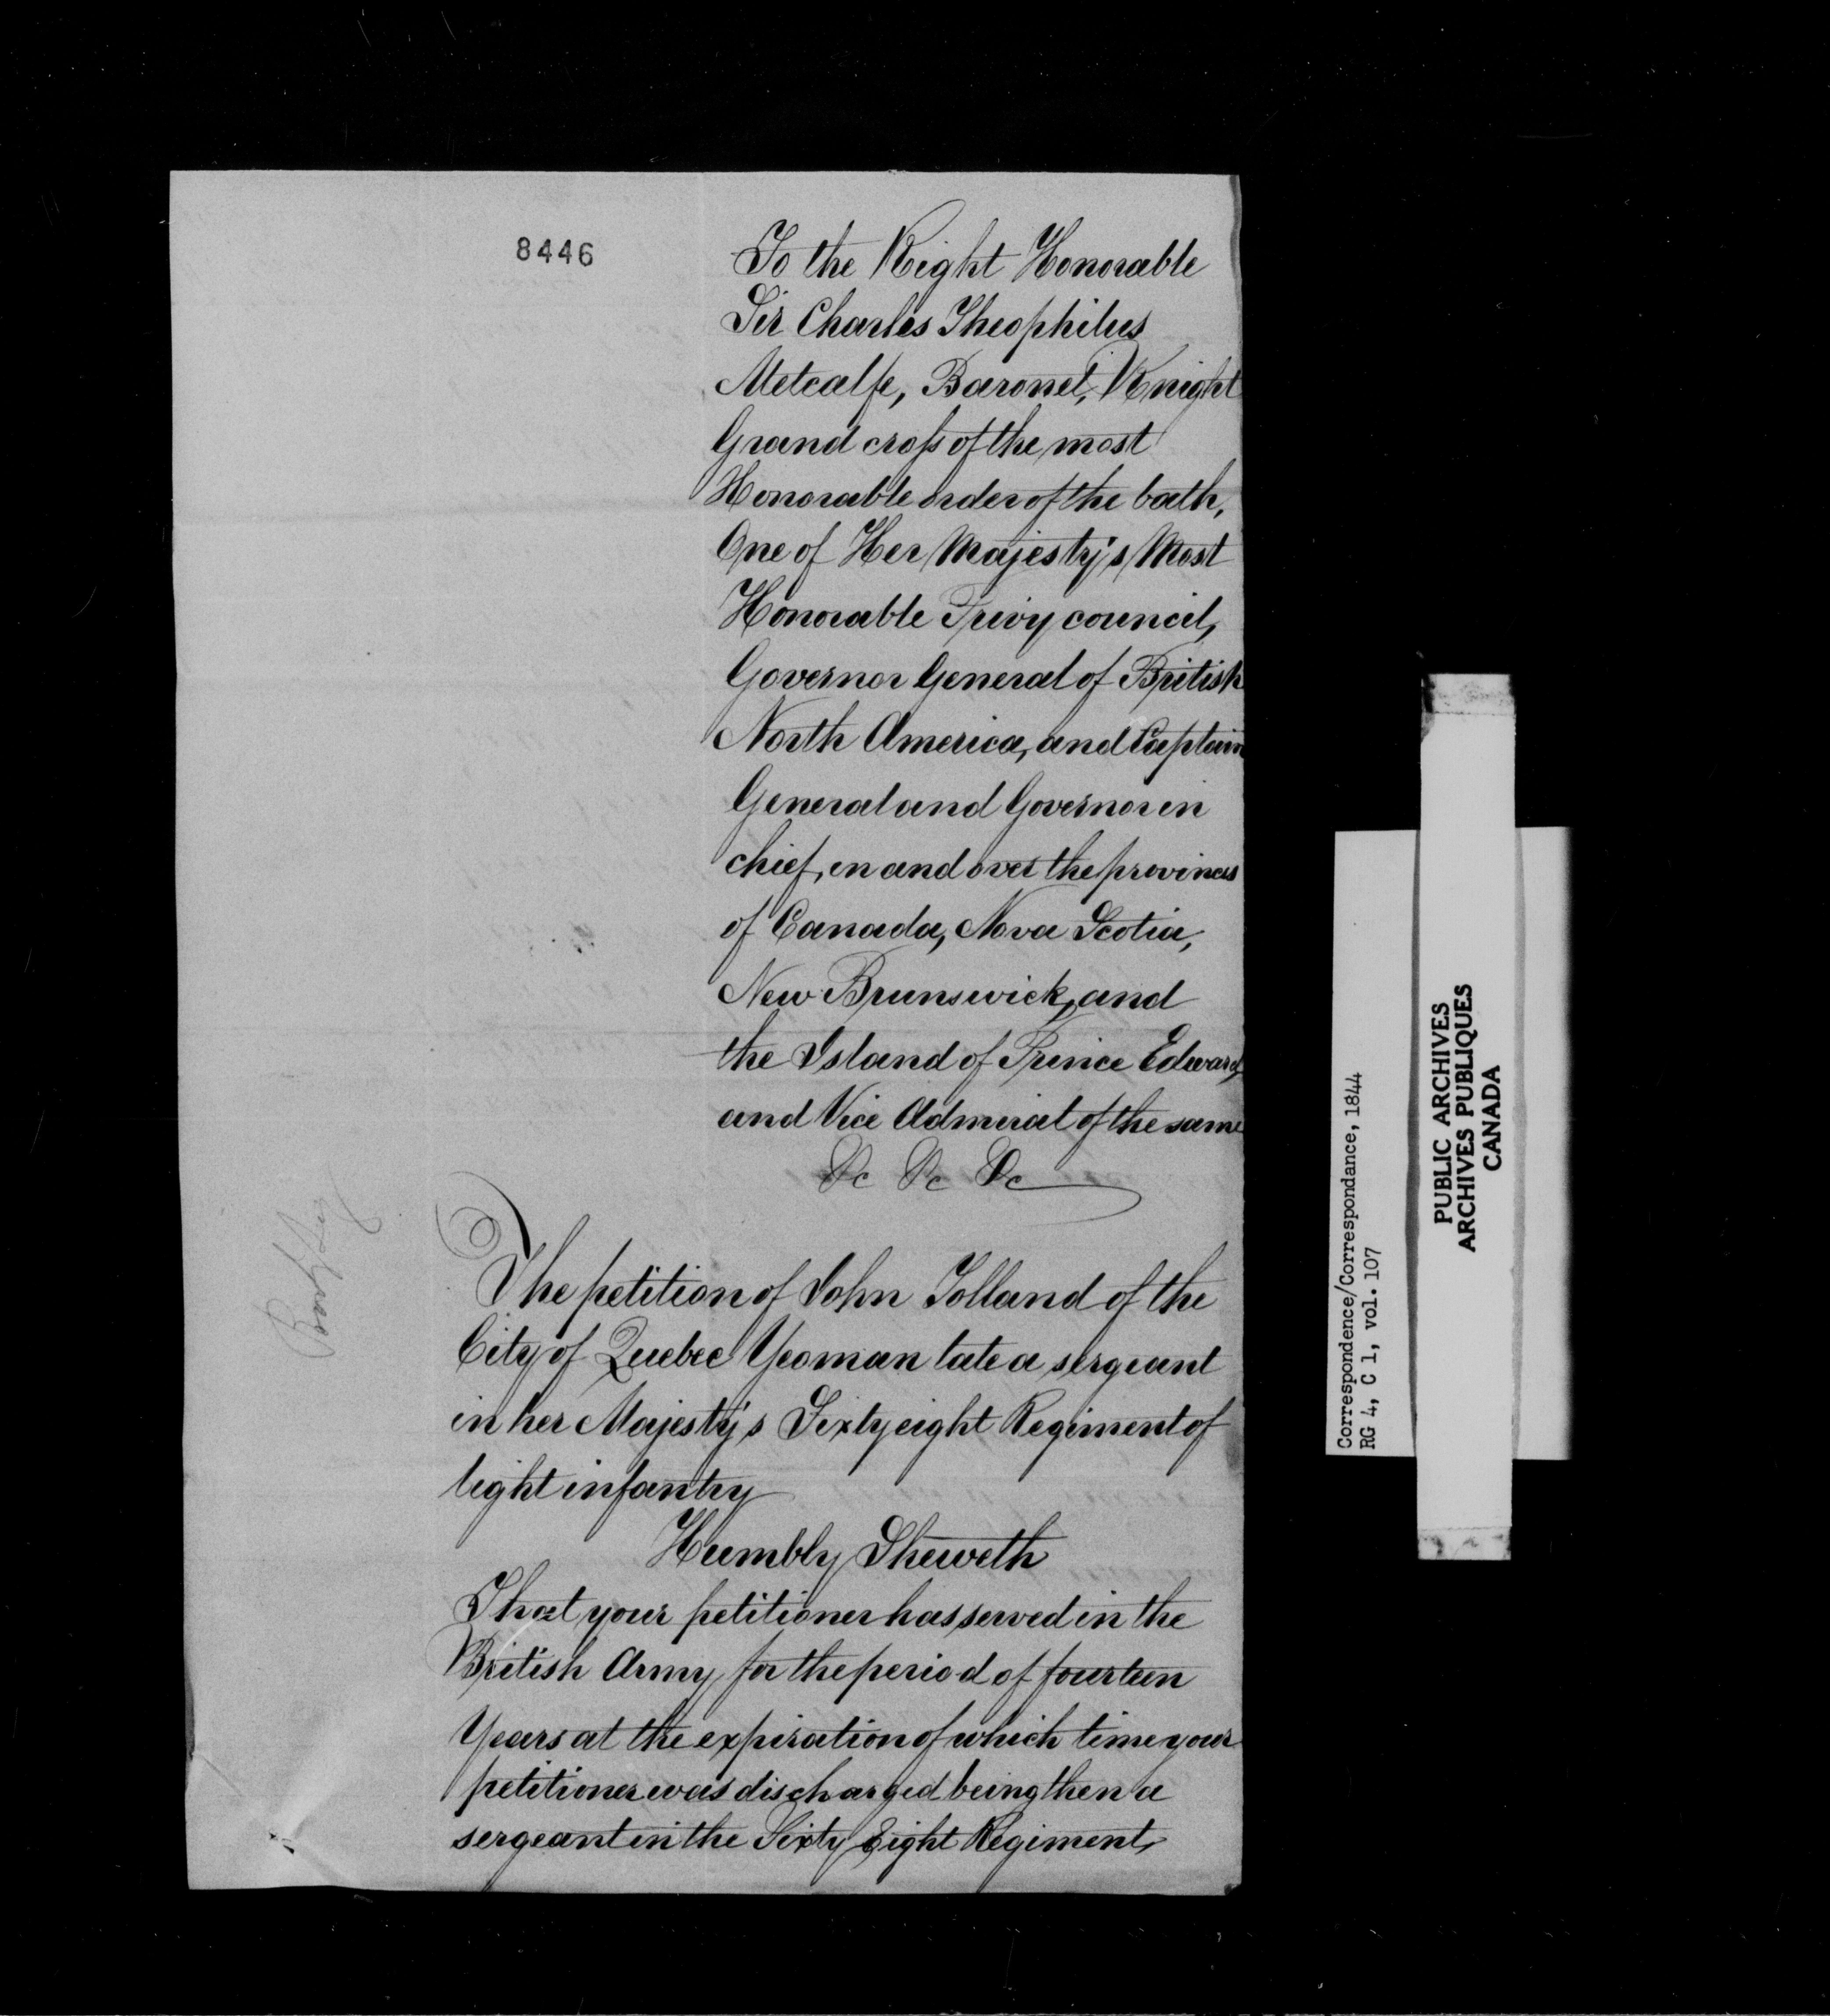 8446
To the Right Honorable
Sir Charles Theophilus
Metcalfe, Baronet, Knight
Grand cross of the most
Honorable order of the bath,
One of Her Majesty's Most
Honorable Privy council,
Governor General of British
North America, and Captain
General and Governor in
chief, in and over the provinces
of Canada, Nova Scotia,
New Brunswick, and
the Island of Prince Edward,
and Vice Admiral of the same
&c &c &c
The petition of John Tolland of the
City of Quebec Yeoman late a sergeant
in her Majesty's Sixty eight Regiment of
light infantry
Humbly Sheweth
That your petitioner has served in the
British Army for the period of fourteen
Years at the expiration of which time your
petitioner was discharged being then a
sergeant in the Sixty Eight Regiment,
Correspondence/Correspondance, 1844
RG 4, C 1, vol. 107
PUBLIC ARCHIVES
ARCHIVES PUBLIQUES
CANADA